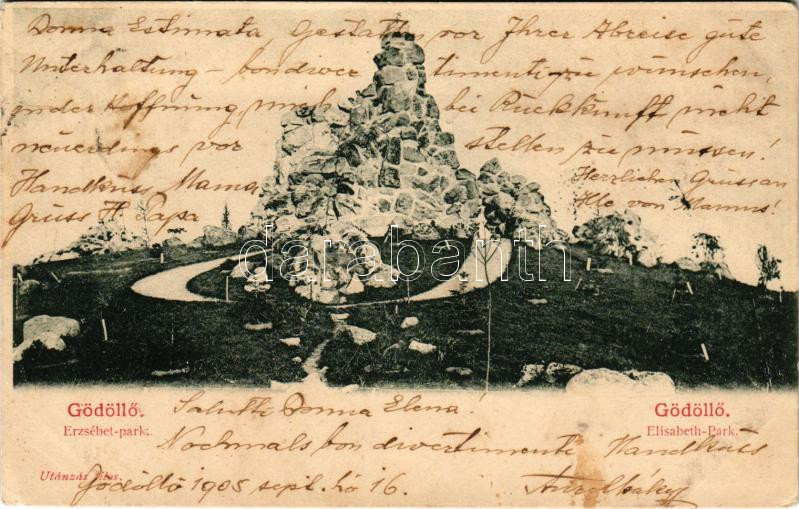 Donna Estimata, Gestatten vor Ihrer Abreise gute
Unterhaltung – bon divertimenti zu wünschen,
in der Hoffnung, mich bei Rückkunft nicht
neuerdings vor stellen zu müssen!
Handkuss Mama
Gruss H Papa
Herzlichen Grüss an
Alle von Mamus!
darabanth
Gödöllő.
Erzsébet-park.
Gödöllő.
Elisabeth-Park.
Salutti Donna Elena!
Nochmals bon divertimenti Handkuss
Utánzás tilos.
Gödöllő 1905 sept. hó 16.